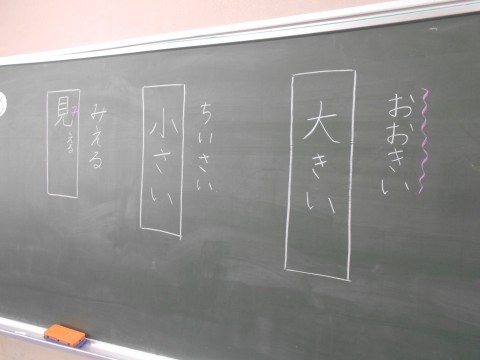 おおきい
大きい
ちいさい
小さい
みえる
見える